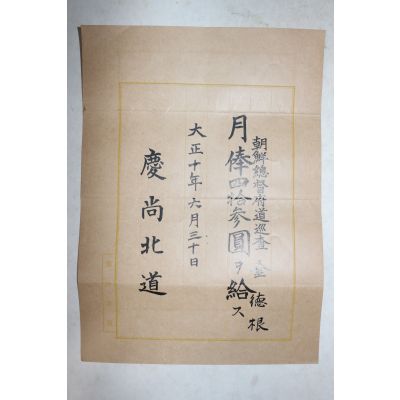 朝鮮總督府道巡査 金德根
月俸四拾参圓ヲ給ス
大正十年六月三十日
慶尚北道